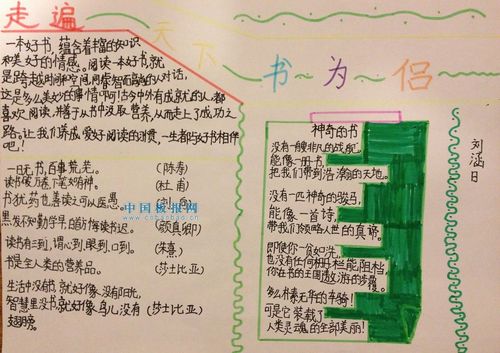 走遍
天下
书为侣
一本好书,蕴含着丰富的知识
和美好的情感。阅读一本好书,就
是跨越时间和空间,同睿智而高尚的人对话,
这是多么美妙的事情啊!古今中外有成就的人,都
喜欢阅读,并善于从书中汲取营养,从而走上了成功之
路。让我们养成爱好阅读的习惯,一生都与好书相伴
吧!
一日无书,百事荒芜。(陈寿)
读书破万卷,下笔如有神。(杜甫)
书犹药也,善读之可以医愚。(刘向)
中国板报网
黑发不知勤学早,白首方悔读书迟。(颜真卿)
读书有三到,谓心到,眼到,口到。(朱熹)
书是全人类的营养品。(莎士比亚)
生活中没有书,就好像没有阳光,
智慧里没书,就好像鸟儿没有(莎士比亚)
翅膀。
神奇的书
没有一艘非凡的战舰,
能像一册书
把我们带到浩瀚的天地。
没有一匹神奇的骏马,
能像一首诗,
带我们领略人世的真谛。
即使你一贫如洗,
也没有任何栅栏能阻挡
你在书的王国遨游的步履。
多么朴素无华的车骑!
可是它装载了
人类灵魂的全部美丽!
刘涵日